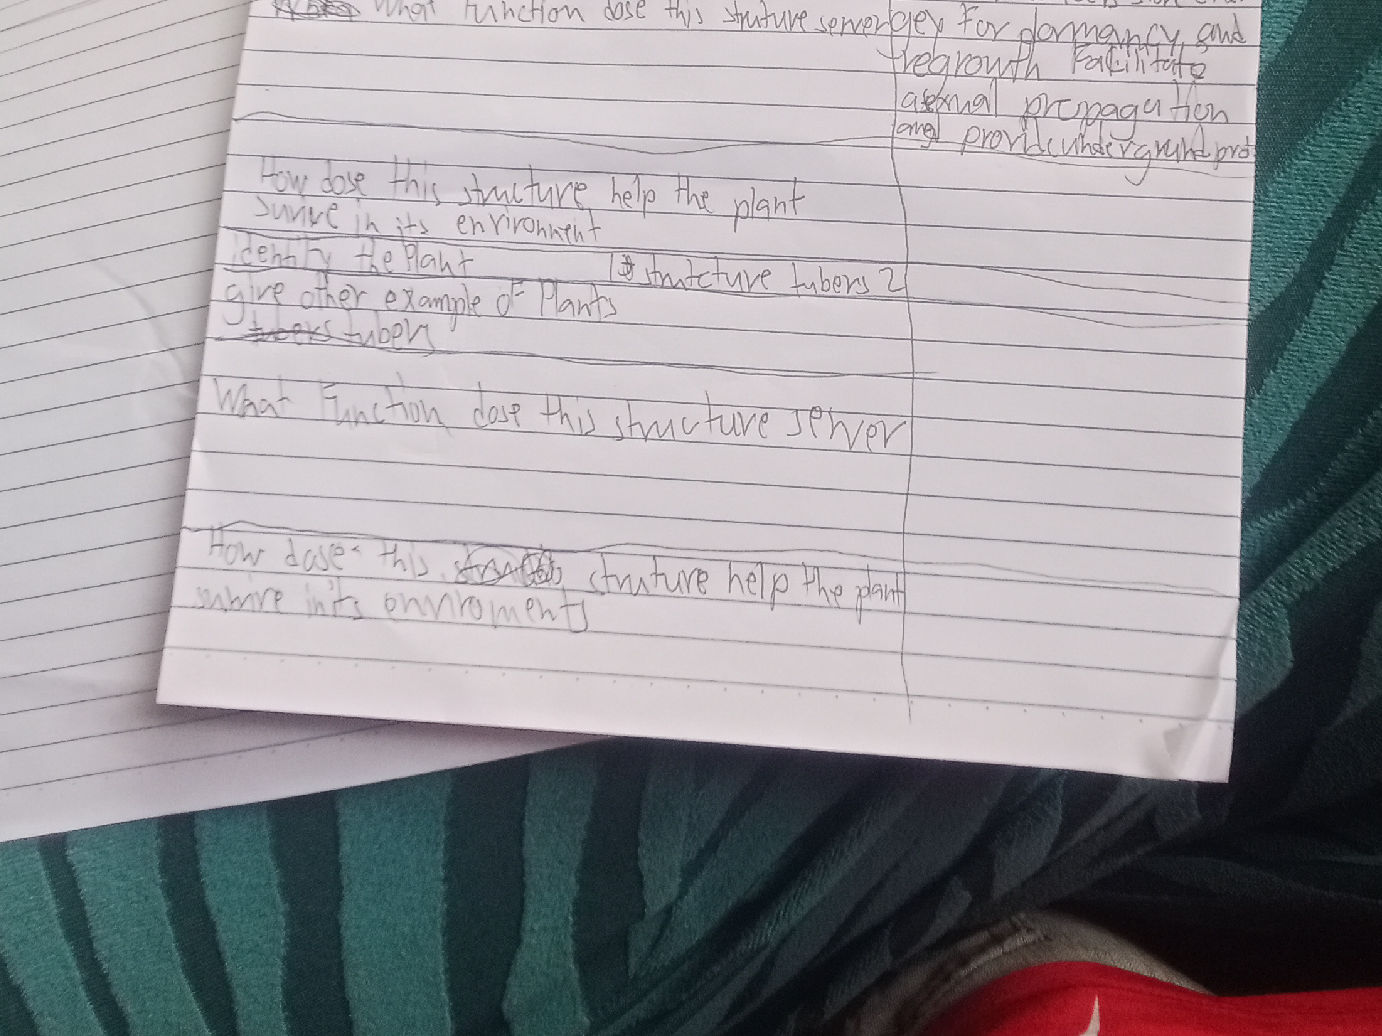 What Function dose this struture server
gey For dormancy and
regrowth Facilitate
asexual propagation
and provide undergrund pro
How dose this structure help the plant
surive in its environment
identify the Plant
structure tubers 2
give other example of Plants
tubers
What Function dose this structure server
How dose this struture help the plant
surive in its onviroments